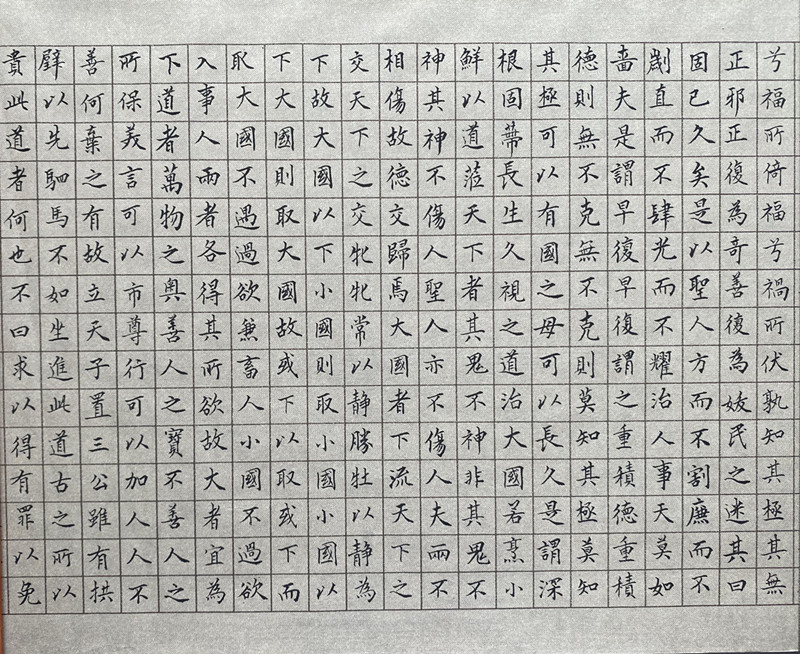 兮福所倚福兮禍所伏孰知其極其無
正邪正復為奇善復為妓民之迷其曰
固已久矣是以聖人方而不割廉而不
劌直而不肆光而不耀治人事天莫如
嗇夫是謂早復早復謂之重積德重積
德則無不克無不克則莫知其極莫知
其極可以有國之母可以長久是謂深
根固蒂長生久視之道治大國若烹小
鮮以道蒞天下者其鬼不神非其鬼不
神其神不傷人聖人亦不傷人夫兩不
相傷故德交歸焉大國者下流天下之
交天下之交牝牝常以静勝牡以静為
下故大國以下小國則取小國小國以
下大國則取大國故或下以取或下而
取大國不遇過欲兼畜人小國不過欲
入事人兩者各得其所欲故大者宜為
下道者萬物之奧善人之寶不善人之
所保美言可以市尊行可以加人人不
善何棄之有故立天子置三公雖有拱
璧以先駟馬不如坐進此道古之所以
貴此道者何也不曰求以得有罪以免